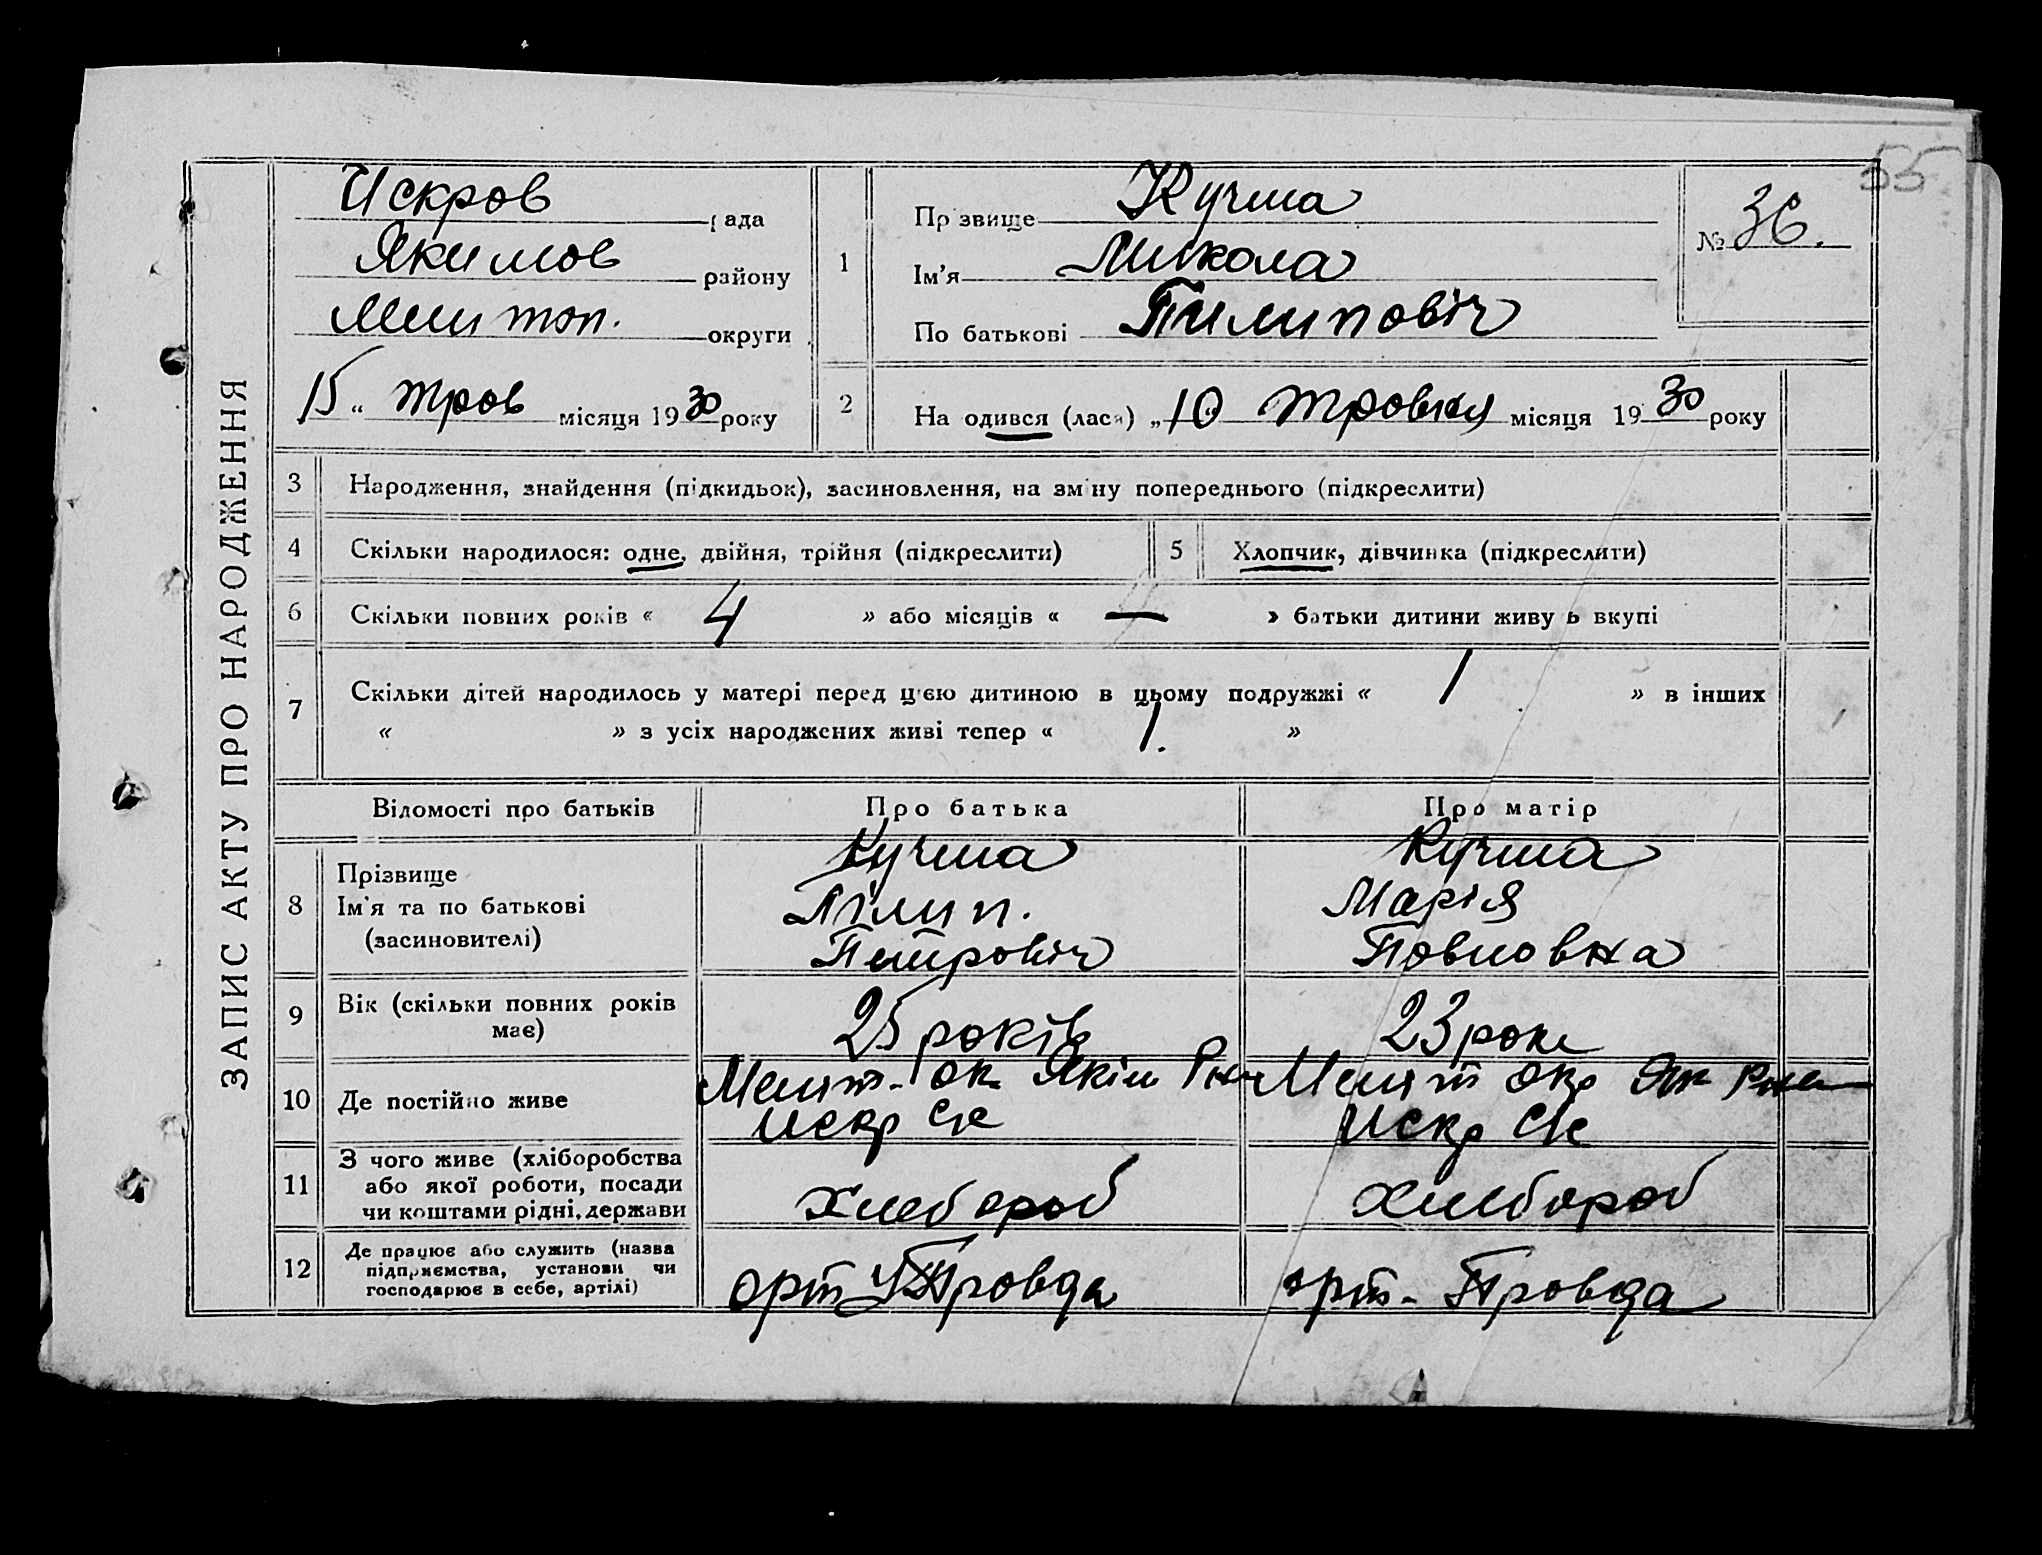 55
ЗАПИС АКТУ ПРО НАРОДЖЕННЯ
Искров рада
Якимов району
Мелитоп. округи
15 " трав місяця 1930 року
1 Прізвище Кучма
Ім'я Микола
По батькові Пилиповіч
№ 36.
2 Народився (лася) „10 травня місяця 1930 року
3 Народження, знайдення (підкидьок), засиновлення, на зміну попереднього (підкреслити)
4 Скільки народилося: одне, двійня, трійня (підкреслити) 5 Хлопчик, дівчинка (підкреслити)
6 Скільки повних років « 4 » або місяців « — » батьки дитини живуть вкупі
7 Скільки дітей народилось у матері перед цією дитиною в цьому подружжі « 1 » в інших
« » з усіх народжених живі тепер « 1. »
Відомості про батьків Про батька Про матір
8 Прізвище
Ім'я та по батькові
(засиновителі)
Кучма
Пілип.
Петровіч
Кучма
Марія
Повловна
9 Вік (скільки повних років
має)
25 років
23 роки
10 Де постійно живе
Мелит. ок. Якім Рн
Искр С/с
Мелит окр Як Рна
Искр С/с
11 З чого живе (хліборобства
або якої роботи, посади
чи коштами рідні, держави
Хлебороб
Хлебороб
12 Де працює або служить (назва
підприємства, установи чи
господарює в себе, артілі)
орт Провда
орт. Провда